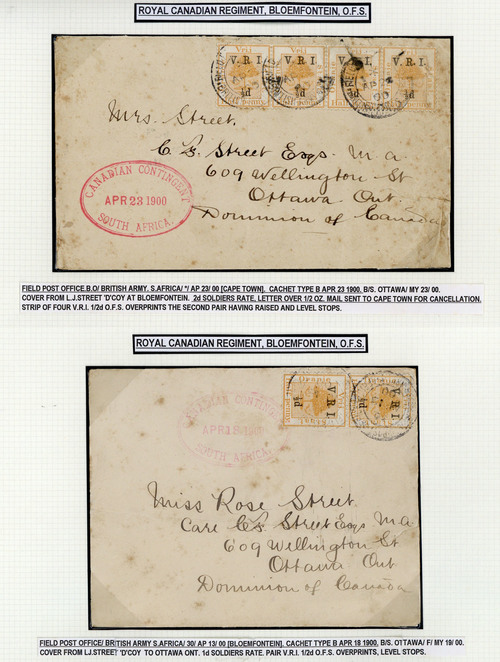 ROYAL CANADIAN REGIMENT, BLOEMFONTEIN, O.F.S.
V.R.I. V.R.I. V.R.I. V.R.I.
½d ½d ½d ½d
Mrs. Street.
C. L. Street Esqr. M.a.
609 Wellington St
Ottawa Ont.
Dominion of Canada
CANADIAN CONTINGENT
APR 23 1900
SOUTH AFRICA.
FIELD POST OFFICE.B.O/ BRITISH ARMY. S.AFRICA/ */ AP 23/ 00 [CAPE TOWN]. CACHET TYPE B APR 23 1900, B/S. OTTAWA/ MY 23/ 00.
COVER FROM L.J.STREET 'D'COY AT BLOEMFONTEIN. 2d SOLDIERS RATE, LETTER OVER 1/2 OZ. MAIL SENT TO CAPE TOWN FOR CANCELLATION,
STRIP OF FOUR V.R.I. 1/2d O.F.S. OVERPRINTS THE SECOND PAIR HAVING RAISED AND LEVEL STOPS.
ROYAL CANADIAN REGIMENT, BLOEMFONTEIN, O.F.S.
CANADIAN CONTINGENT
APR 18 1900
SOUTH AFRICA.
V.R.I. V.R.I.
½d ½d
Miss Rose Street
Care C L Street Esqr M.a
609 Wellington St
Ottawa Ont
Dominion of Canada
FIELD POST OFFICE/ BRITISH ARMY S.AFRICA/ 30/ AP 13/ 00 [BLOEMFONTEIN]. CACHET TYPE B APR 18 1900, B/S. OTTAWA/ F/ MY 19/ 00.
COVER FROM LJ.STREET 'D'COY TO OTTAWA ONT. 1d SOLDIERS RATE. PAIR V.R.I. 1/2d O.F.S. OVERPRINTS, LEVEL STOPS.